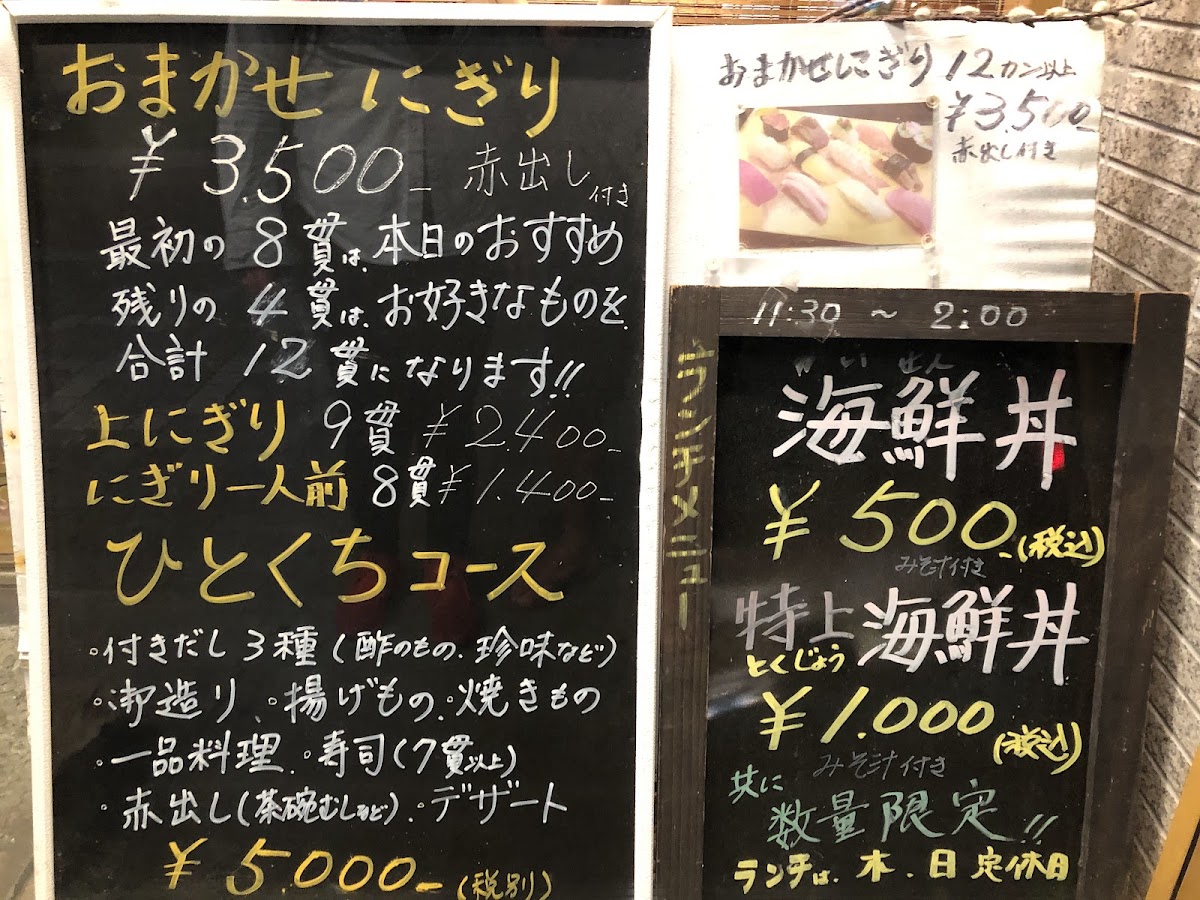 おまかせにぎり
¥3,500- 赤出し付き
最初の8貫は、本日のおすすめ
残りの4貫は、お好きなものを、
合計12貫になります!!
上にぎり 9貫 ¥2.400-
にぎり一人前 8貫 ¥1.400-
ひとくちコース
・付きだし3種(酢のもの、珍味など)
・御造り、・揚げもの、・焼きもの
・一品料理、・寿司(7貫以上)
・赤出し(茶碗むしなど)、・デザート
¥5.000-(税別)
おまかせにぎり 12カン以上
¥3.500-
赤出し付き
11:30 ~ 2:00
ランチメニュー
かいせん
海鮮丼
¥500-(税込)
みそ汁付き
特上海鮮丼
とくじょう
¥1.000(税込)
みそ汁付き
共に
数量限定!!
ランチは、木、日定休日